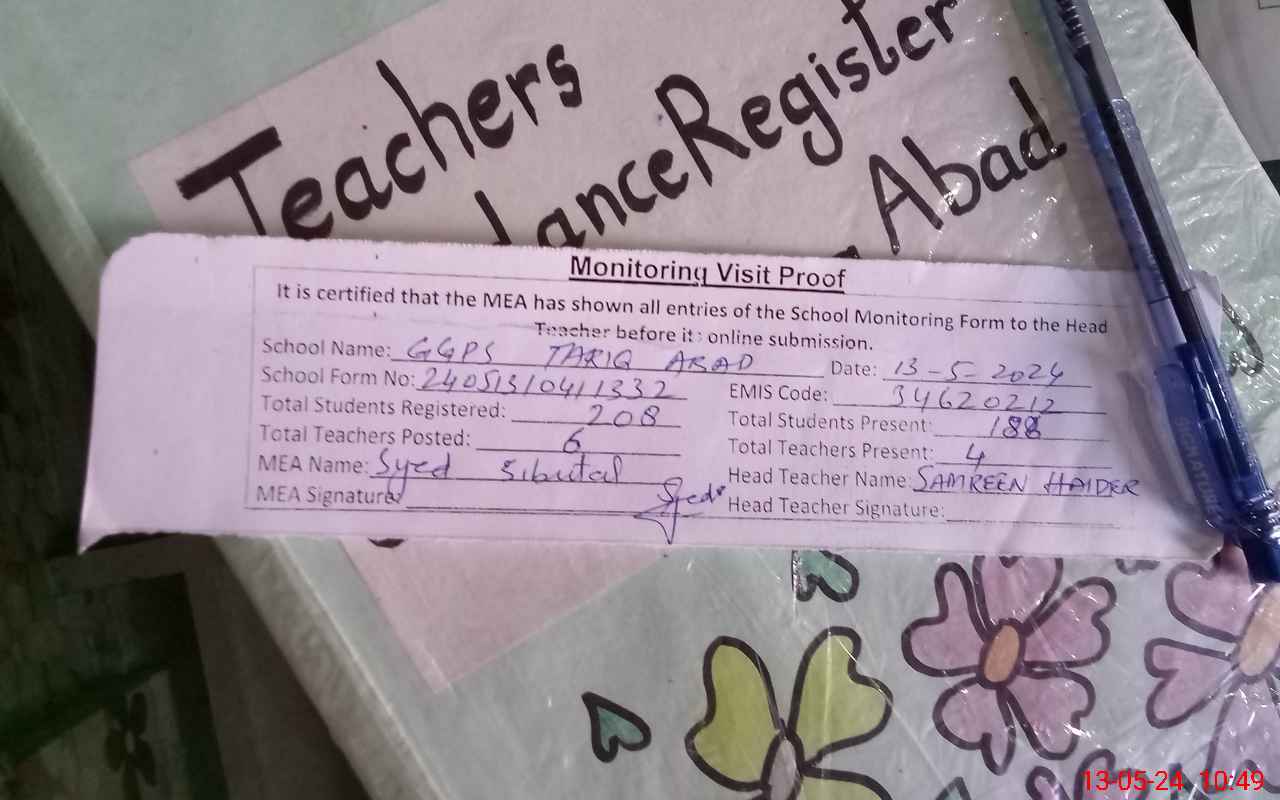 Teachers
danceRegister
Abad
Monitoring Visit Proof
It is certified that the MEA has shown all entries of the School Monitoring Form to the Head
Teacher before it: online submission.
School Name: GGPS TARIQ ABAD Date: 13-5-2024
School Form No: 24051310411332 EMIS Code: 34620212
Total Students Registered: 208 Total Students Present: 188
Total Teachers Posted: 6 Total Teachers Present: 4
MEA Name: Syed Sibutal Head Teacher Name: SAMREEN HAIDER
MEA Signature: Syed Head Teacher Signature:
SIGNATURE
13-05-24 10:49